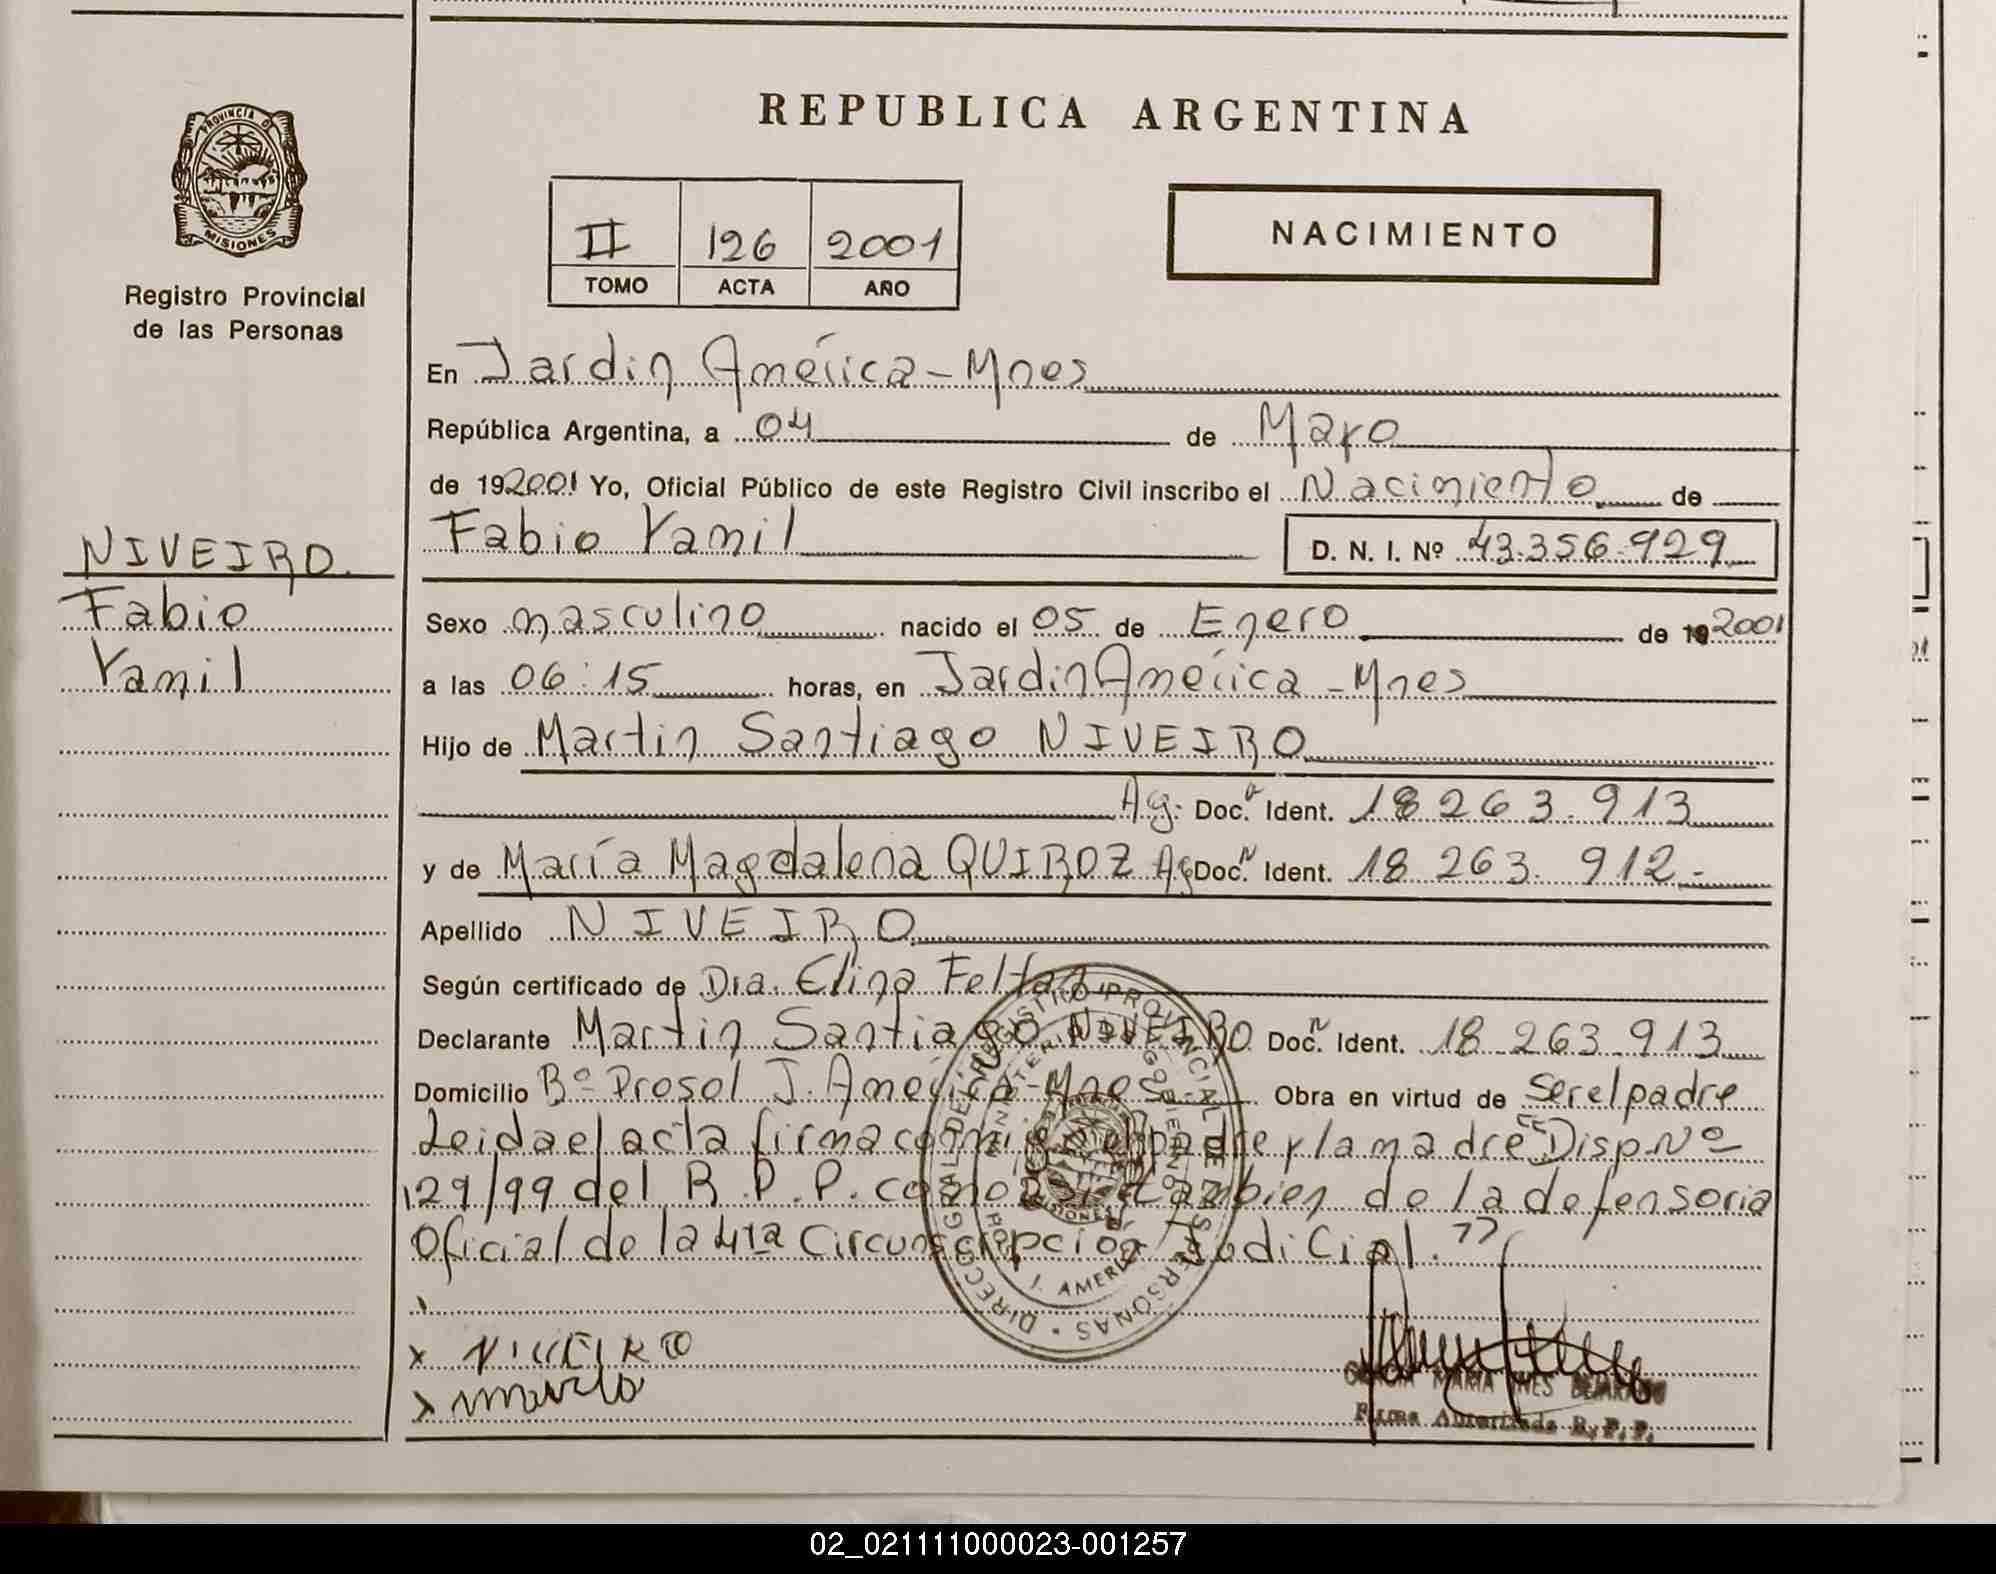 REPUBLICA ARGENTINA
PROVINCIA D
MISIONES
Registro Provincial
de las Personas
II 126 2001
TOMO ACTA AÑO
NACIMIENTO
En Jardin América - Mnes
República Argentina, a 04 de Mayo
de 192001 Yo, Oficial Público de este Registro Civil inscribo el Nacimiento de
Fabio Yamil D. N. I. Nº 43.356.929
NIVEIRO
Fabio
Yamil
Sexo masculino nacido el 05 de Enero de 19 2001
a las 06:15 horas, en Jardin América - Mnes
Hijo de Martin Santiago NIVEIRO
Ag. Doc. Ident. 18.263.913
y de María Magdalena QUIROZ Ag Doc. Ident. 18.263.912.-
Apellido NIVEIRO
Según certificado de Dra. Elina
Declarante Martin Santiago NIVEIRO Doc. Ident. 18.263.913
Domicilio Bº Prosol J. América - Mnes Obra en virtud de ser el padre
Leida el acta firma conmigo el padre y la madre "Disp. Nº
129/99 del R.P.P. como tambien de la defensoria
Oficial de la 4ta Circunscripción Judicial."
DIRECC. GRAL. DEL REGISTRO PROVINCIAL DE LAS PERSONAS
MINISTERIO DE GOBIERNO
MISIONES
J. AMERICA
x NIVEIRO
x
MARIA INES
Firma Autorizada R. P. P.
02_021111000023-001257